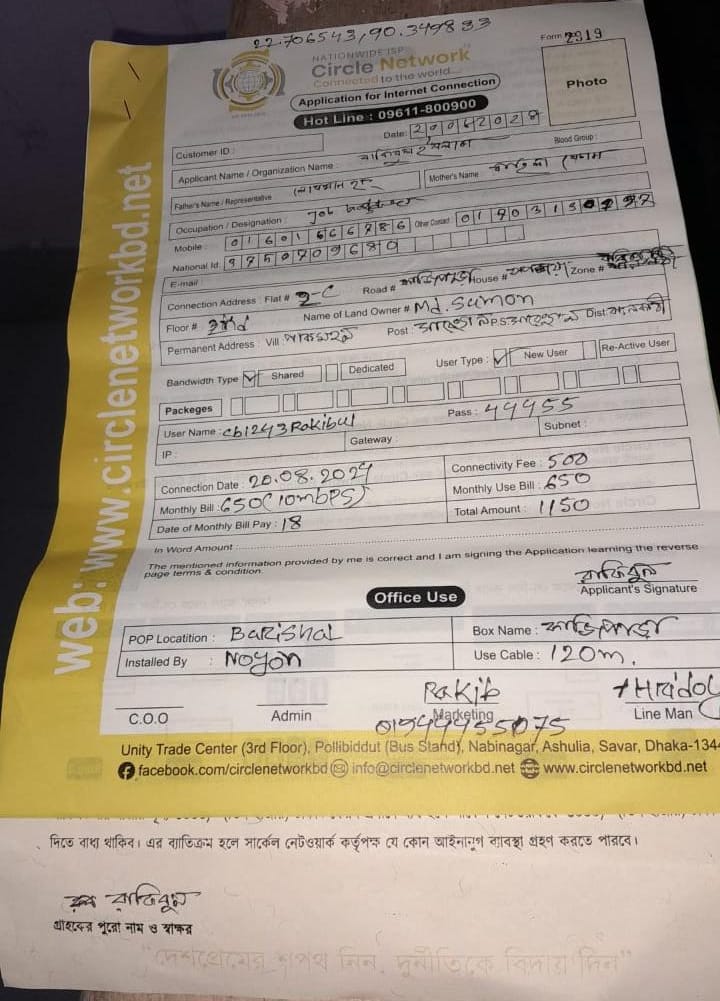 22.706543,90.349833
NATIONWIDE ISP
Circle Network
Connected to the world...
Form 2919
Application for Internet Connection
Hot Line : 09611-800900
Photo
Date:
Customer ID :
Blood Group :
Applicant Name / Organization Name :
Father's Name / Representative
Mother's Name
Occupation / Designation : Job
Mobile : 01601666786 Other Contact
National Id : 3750709680
E-mail :
Connection Address : Flat # 2-C Road # কাজিপাড়া House # Zone #
Floor # 2nd Name of Land Owner # Md. Sumon
Permanent Address : Vill : Post : PS Dist
Bandwidth Type Shared Dedicated User Type : New User Re-Active User
Packeges
User Name : cb1243Rakibul Pass : 44955
IP : Gateway : Subnet :
Connection Date : 20.08.2024 Connectivity Fee : 500
Monthly Bill : 650(10mbPS) Monthly Use Bill : 650
Date of Monthly Bill Pay : 18 Total Amount : 1150
In Word Amount :
The mentioned information provided by me is correct and I am signing the Application learning the reverse
page terms & condition.
রাকিবুল
Applicant's Signature
Office Use
POP Locatition : Barishal Box Name : কাজিপাড়া
Installed By : Noyon Use Cable : 120m.
Rakib Hridoy
C.O.O Admin Marketing Line Man
Unity Trade Center (3rd Floor), Pollibiddut (Bus Stand), Nabinagar, Ashulia, Savar, Dhaka-134
facebook.com/circlenetworkbd info@circlenetworkbd.net www.circlenetworkbd.net
web: www.circlenetworkbd.net
দিতে বাধ্য থাকিব। এর ব্যতিক্রম হলে সার্কেল নেটওয়ার্ক কর্তৃপক্ষ যে কোন আইনানুগ ব্যবস্থা গ্রহণ করতে পারবে।
রাকিবুল
গ্রাহকের পুরো নাম ও স্বাক্ষর
"দেশপ্রেমের শপথ নিন, দুর্নীতিকে বিদায় দিন"